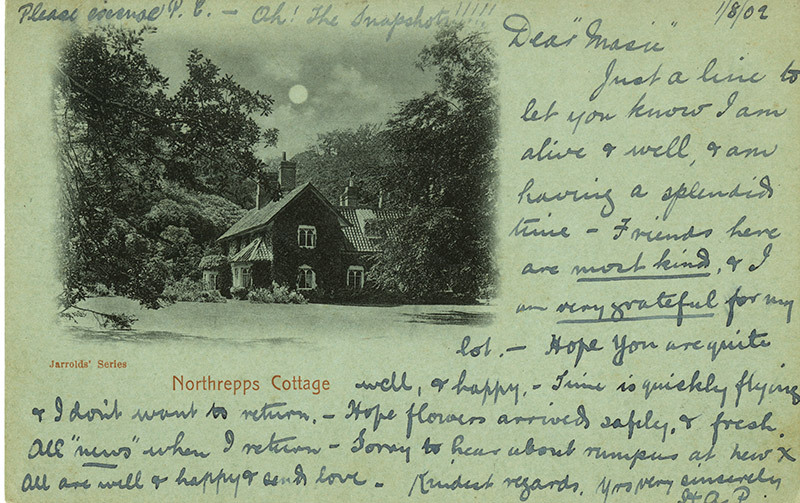 Please excuse P.C. — Oh! The Snapshots!!!!!
1/8/02
Dear "Masie"
Just a line to
let you know I am
alive & well, & am
having a splendid
time – Friends here
are most kind, & I
am very grateful for my
lot. – Hope you are quite
well, & happy. – Time is quickly flying
& I don't want to return. – Hope flowers arrived safely, & fresh.
All "news" when I return – Sorry to hear about rumpus at new X
All are well & happy & sends love – Kindest regards, Yrs very sincerely
H.A.P.
Jarrolds' Series
Northrepps Cottage